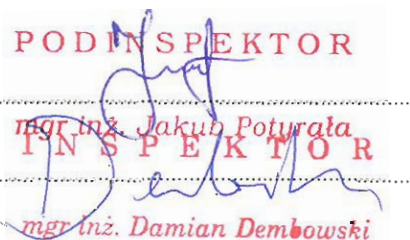 PODINSPEKTOR
mgr inż. Jakub Potyrała
INSPEKTOR
mgr inż. Damian Dembowski